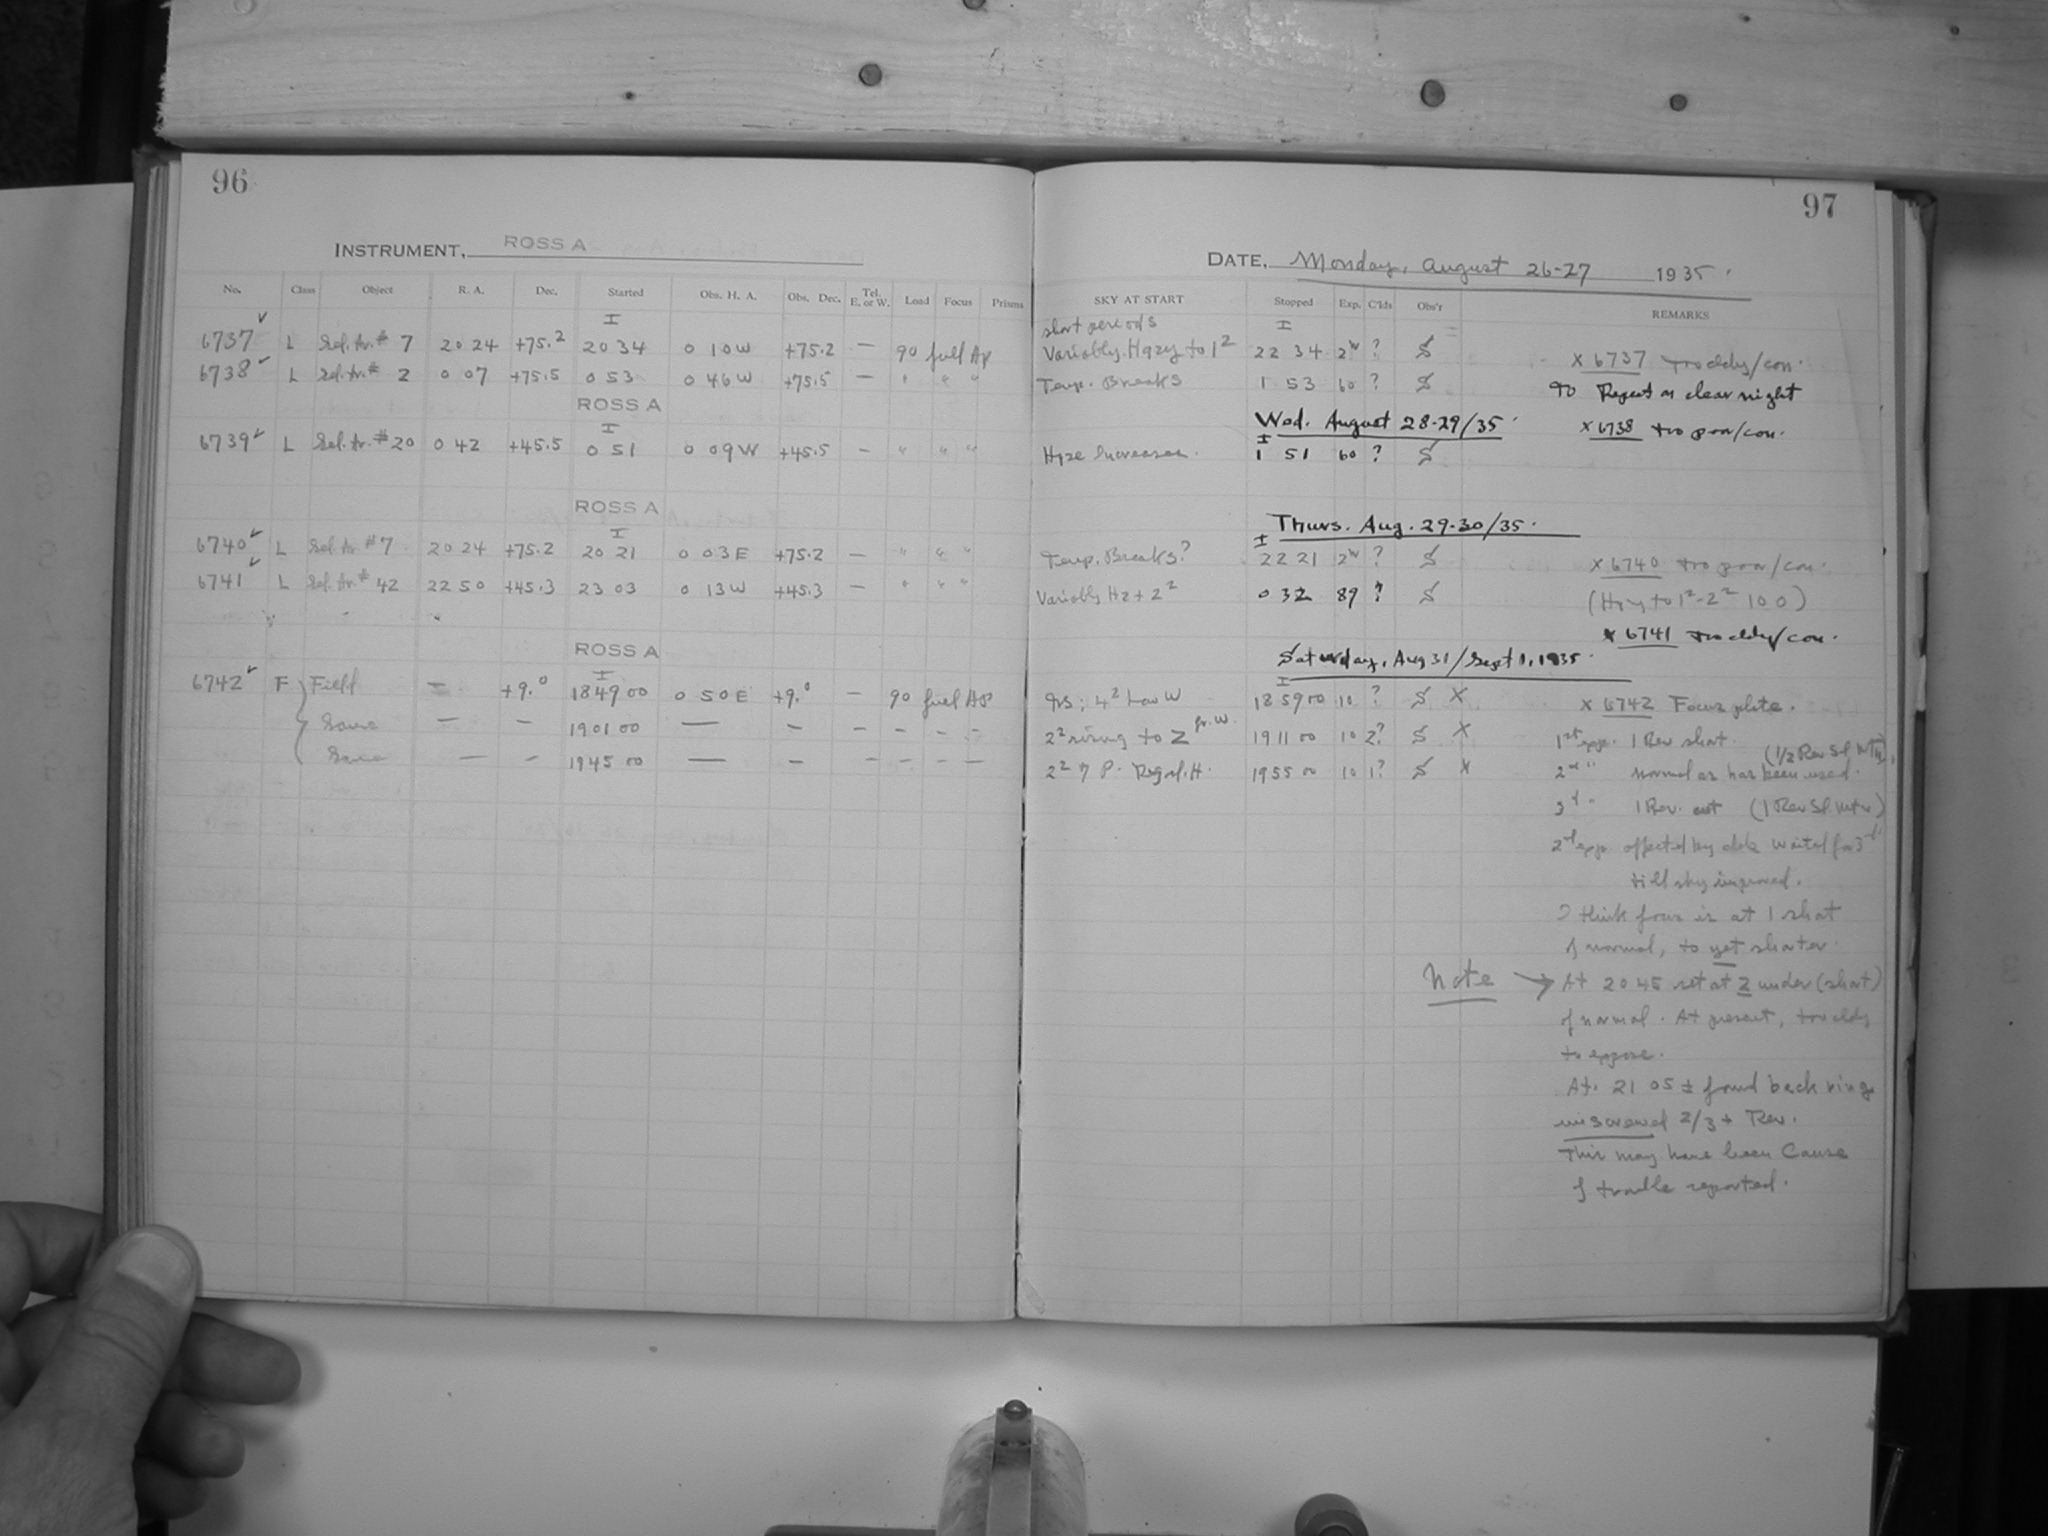 96
INSTRUMENT, ROSS A
No. Class Object R. A. Dec. Started Obs. H. A. Obs. Dec. Tel. E. or W. Load Focus Prisms
I
6737 L Sel. Ar. # 7 20 24 +75.2 20 34 0 10 W +75.2 — 90 full Ap
6738 L Sel. Ar. # 2 0 07 +75.5 0 53 0 46 W +75.5 — " " "
ROSS A
I
6739 L Sel. Ar. # 20 0 42 +45.5 0 51 0 09 W +45.5 — " " "
ROSS A
I
6740 L Sel. Ar. # 7 20 24 +75.2 20 21 0 03 E +75.2 — " " "
6741 L Sel. Ar. # 42 22 50 +45.3 23 03 0 13 W +45.3 — " " "
ROSS A
I
6742 F Field — +9.° 18 49 00 0 50 E +9.° — 90 full Ap
Same — — 19 01 00 — — — — — —
Same — — 19 45 00 — — — — — —
97
DATE, Monday, August 26-27 1935.
SKY AT START Stopped Exp. C'lds Obs'r REMARKS
short periods I
Variably Hazy to 1² 22 34 2ʰ ? S x 6737 Too cldy/con.
Temp. Breaks 1 53 60 ? S To Repeat on clear night
Wed. August 28-29/35. x 6738 too poor/con.
I
Haze Increases. 1 51 60 ? S
Thurs. Aug. 29-30/35.
I
Temp. Breaks? 22 21 2ʰ ? S x 6740 too poor/con.
Variably Hz + 2² 0 32 89 ? S (Hzy to 1²-2² 100)
x 6741 too cldy/con.
Saturday, Aug 31/Sept 1, 1935.
I
4² Low W 18 59 00 10 ? S X x 6742 Focus plate.
2² rising to Z fr. W. 19 11 00 10 2? S X 1st expo. 1 Rev short.
2² 19 55 00 10 1? S X 2nd " normal as has been used.
3d " 1 Rev. out
2nd expo. affected by clds Waited for 3d
till sky improved.
I think focus is at 1 short
of normal, to yet shorter.
Note → At 20 45 set at 2 under (short)
of normal. At present, too cldy
to expose.
At 21 05 ± found back ring
unscrewed 2/3 + Rev.
This may have been Cause
of trouble reported.